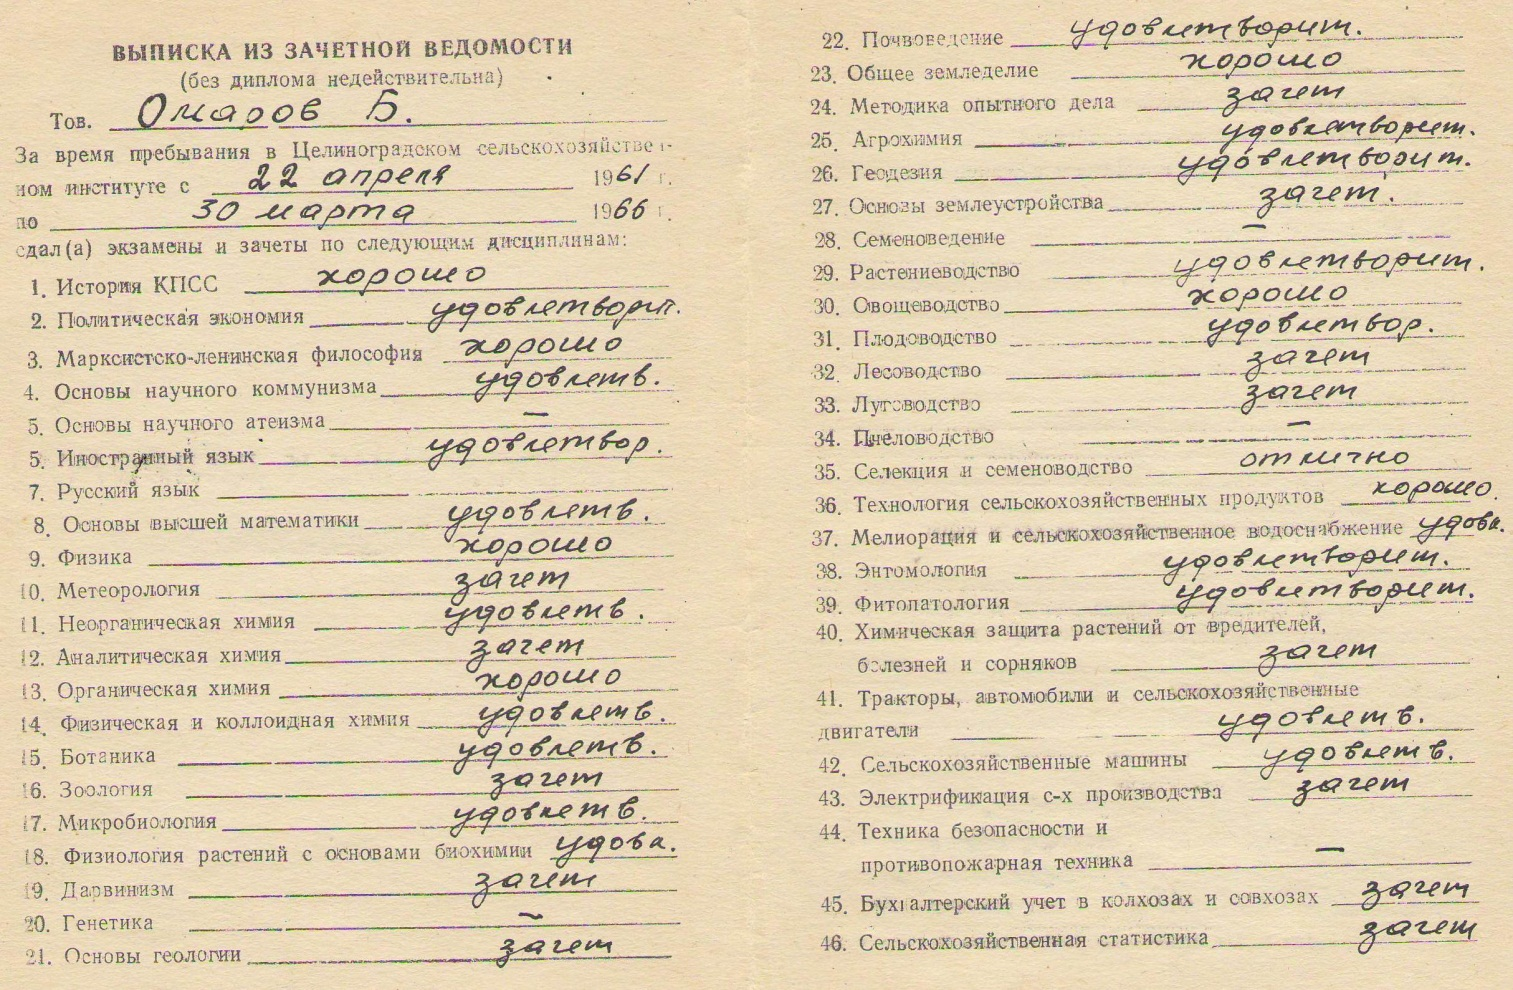 ВЫПИСКА ИЗ ЗАЧЕТНОЙ ВЕДОМОСТИ
(без диплома недействительна)
Тов. Омаров Б.
За время пребывания в Целиноградском сельскохозяйствен-
ном институте с 22 апреля 1961 г.
по 30 марта 1966 г.
сдал(а) экзамены и зачеты по следующим дисциплинам:
1. История КПСС хорошо
2. Политическая экономия удовлетворит.
3. Марксистско-ленинская философия хорошо
4. Основы научного коммунизма удовлетв.
5. Основы научного атеизма —
5. Иностранный язык удовлетвор.
7. Русский язык
8. Основы высшей математики удовлетв.
9. Физика хорошо
10. Метеорология зачет
11. Неорганическая химия удовлетв.
12. Аналитическая химия зачет
13. Органическая химия хорошо
14. Физическая и коллоидная химия удовлетв.
15. Ботаника удовлетв.
16. Зоология зачет
17. Микробиология удовлетв.
18. Физиология растений с основами биохимии удовл.
19. Дарвинизм зачет
20. Генетика —
21. Основы геологии зачет
22. Почвоведение удовлетворит.
23. Общее земледелие хорошо
24. Методика опытного дела зачет
25. Агрохимия удовлетворит.
26. Геодезия удовлетворит.
27. Основы землеустройства зачет.
28. Семеноведение —
29. Растениеводство удовлетворит.
30. Овощеводство хорошо
31. Плодоводство удовлетвор.
32. Лесоводство зачет
33. Луговодство зачет
34. Пчеловодство —
35. Селекция и семеноводство отлично
36. Технология сельскохозяйственных продуктов хорошо.
37. Мелиорация и сельскохозяйственное водоснабжение удовл.
38. Энтомология удовлетворит.
39. Фитопатология удовлетворит.
40. Химическая защита растений от вредителей,
болезней и сорняков зачет
41. Тракторы, автомобили и сельскохозяйственные
двигатели удовлетв.
42. Сельскохозяйственные машины удовлетв.
43. Электрификация с-х производства зачет
44. Техника безопасности и
противопожарная техника —
45. Бухгалтерский учет в колхозах и совхозах зачет
46. Сельскохозяйственная статистика зачет